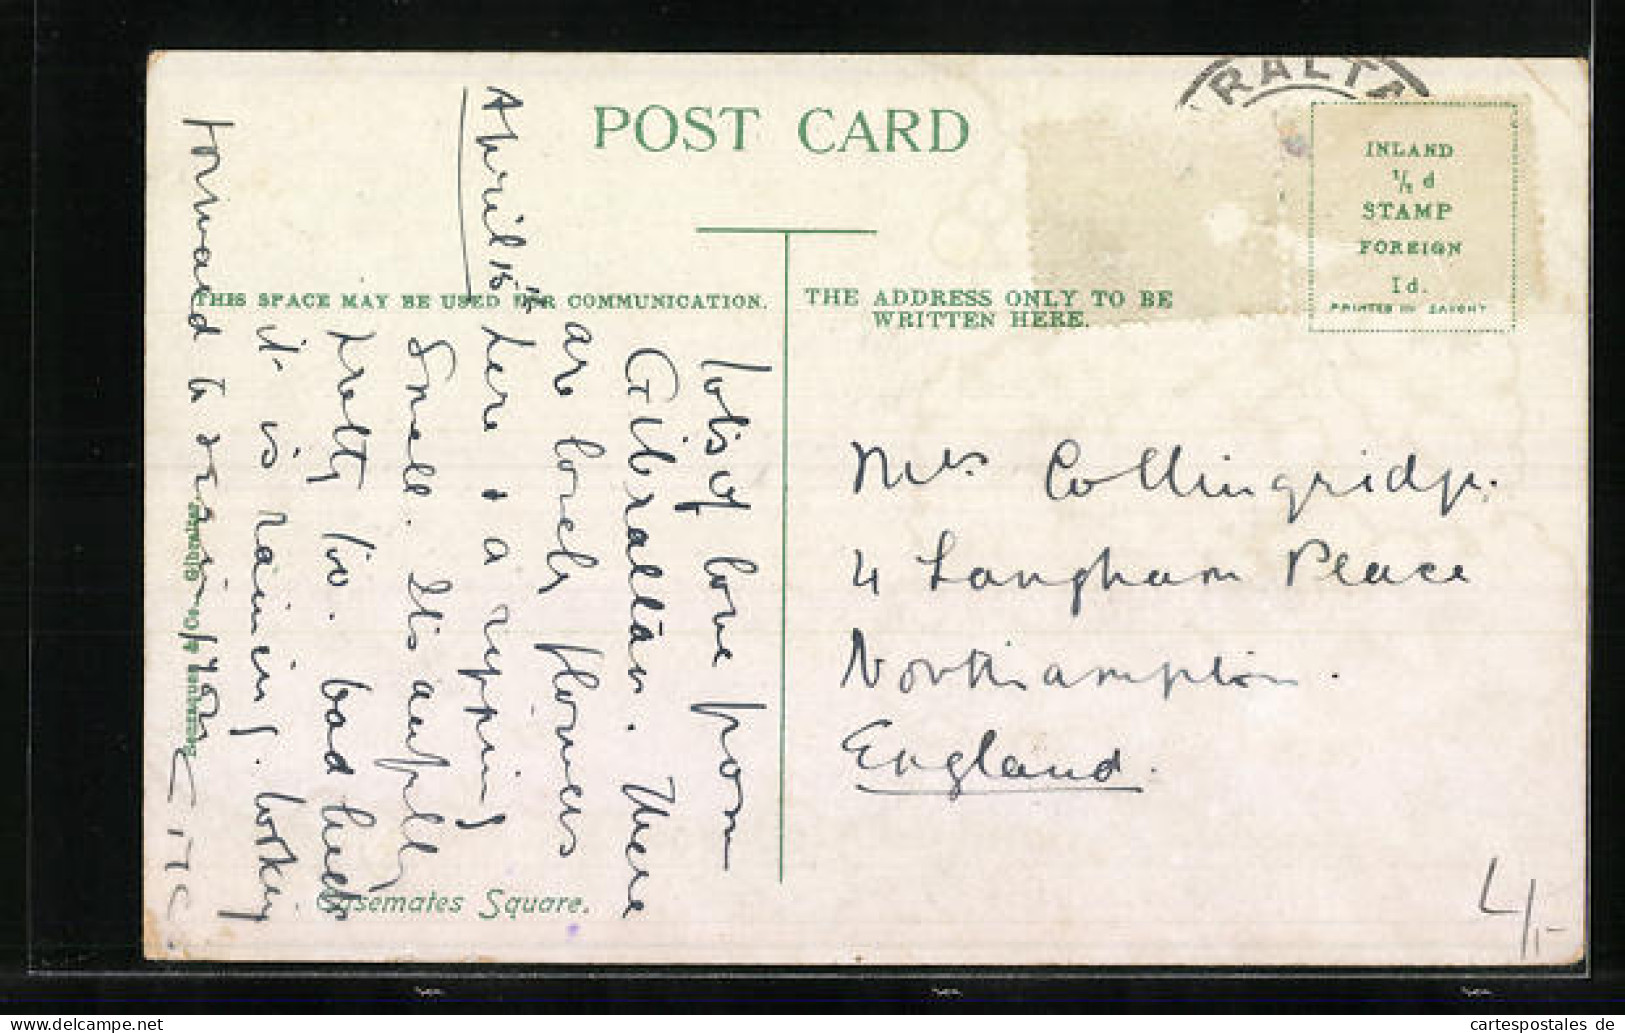 RALTA
POST CARD
INLAND
½ d
STAMP
FOREIGN
1d.
PRINTED IN SAXONY
THIS SPACE MAY BE USED FOR COMMUNICATION.
THE ADDRESS ONLY TO BE
WRITTEN HERE.
April 15th
lots of love from
Gibraltar. There
are lovely flowers
here & a ripping
smell. It's awfully
pretty too. bad luck
it is raining. looking
forward to seeing you
C.M.C.
Mrs Collingridge.
4 Langham Place
Northampton.
England.
Beanzaquen & Co. Gibraltar
Casemates Square.
4/-
cartespostales de